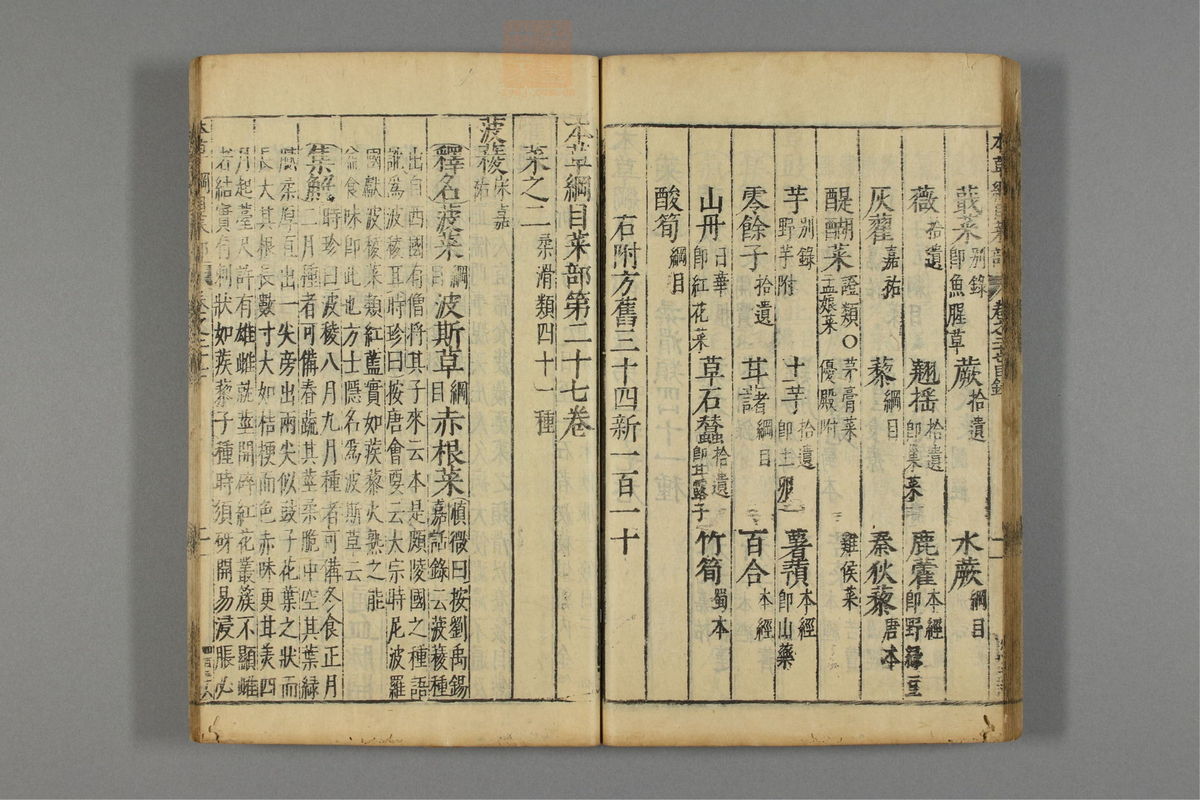 蕺菜 別錄 即魚腥草 蕨 拾遺 水蕨 綱目
薇 拾遺 翹搖 拾遺 即巢菜 鹿藿 本經 即野綠豆
灰藋 嘉祐 藜 綱目 秦狄藜 唐本
醍醐菜 證類 ○ 茅膏菜 雞侯菜 孟娘菜 優殿附
芋 別錄 野芋附 土芋 拾遺 即土卵 薯蕷 本經 即山藥
零餘子 拾遺 甘藷 綱目 百合 本經
山丹 日華 即紅花菜 草石蠶 拾遺 即甘露子 竹筍 蜀本
酸筍 綱目
右附方舊三十四新一百一十
本草綱目菜部第二十七卷
菜之二 柔滑類四十一種
菠薐 宋嘉祐
釋名 菠菜 綱目 波斯草 綱目 赤根菜 慎微曰按劉禹錫嘉話錄云菠薐種
出自西國有僧將其子來云本是頗陵國之種語
訛爲波稜耳時珍曰按唐會要云太宗時尼波羅
國獻波稜菜類紅藍實如蒺藜火熟之能
益食味即此也方士隱名爲波斯草云
集解 時珍曰波稜八月九月種者可備冬食正月
二月種者可備春蔬其莖柔脆中空其葉綠
膩柔厚直出一尖旁出兩尖似鼓子花葉之狀而
長大其根長數寸大如桔梗而色赤味更甘美四
月起薹尺許有雄雌就莖開碎紅花叢簇不顯雌
者結實有刺狀如蒺藜子種時須砑開易浸脹必